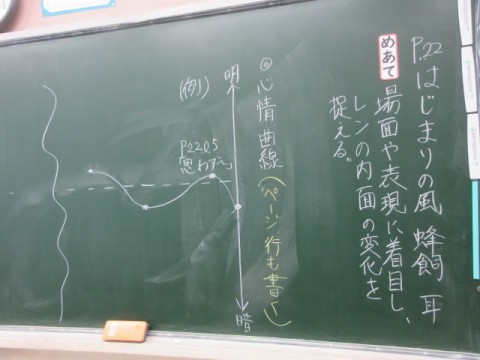 P.22 はじまりの風 蜂飼 耳
めあて 場面や表現に着目し、
レンの内面の変化を
捉える。
◎心情曲線(ページ・行も書く)
明
暗
(例)
P22 l5
思わず…